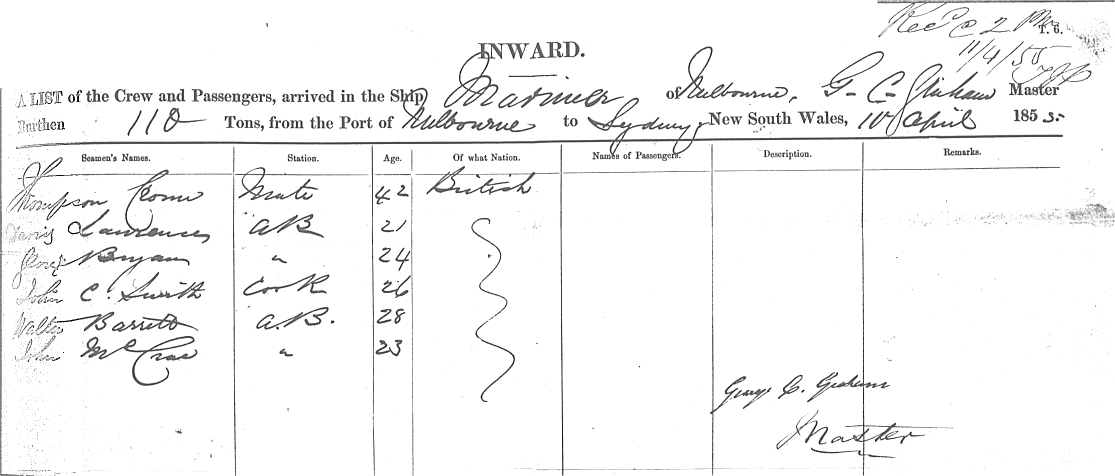 Rec'd @ 2 PM
T. 6.
11/4/55
INWARD.
A LIST of the Crew and Passengers, arrived in the Ship Mariner of Melbourne, G. C. Graham Master
Burthen 110 Tons, from the Port of Melbourne to Sydney, New South Wales, 10 April 1855
Seamen's Names. Station. Age. Of what Nation. Names of Passengers. Description. Remarks.
Thompson Mate 42 British
Lawrence AB 21
Bryan " 24
John C. Smith Cook 26
Walter Barrett A.B. 28
John McCrae " 23
George C. Graham
Master